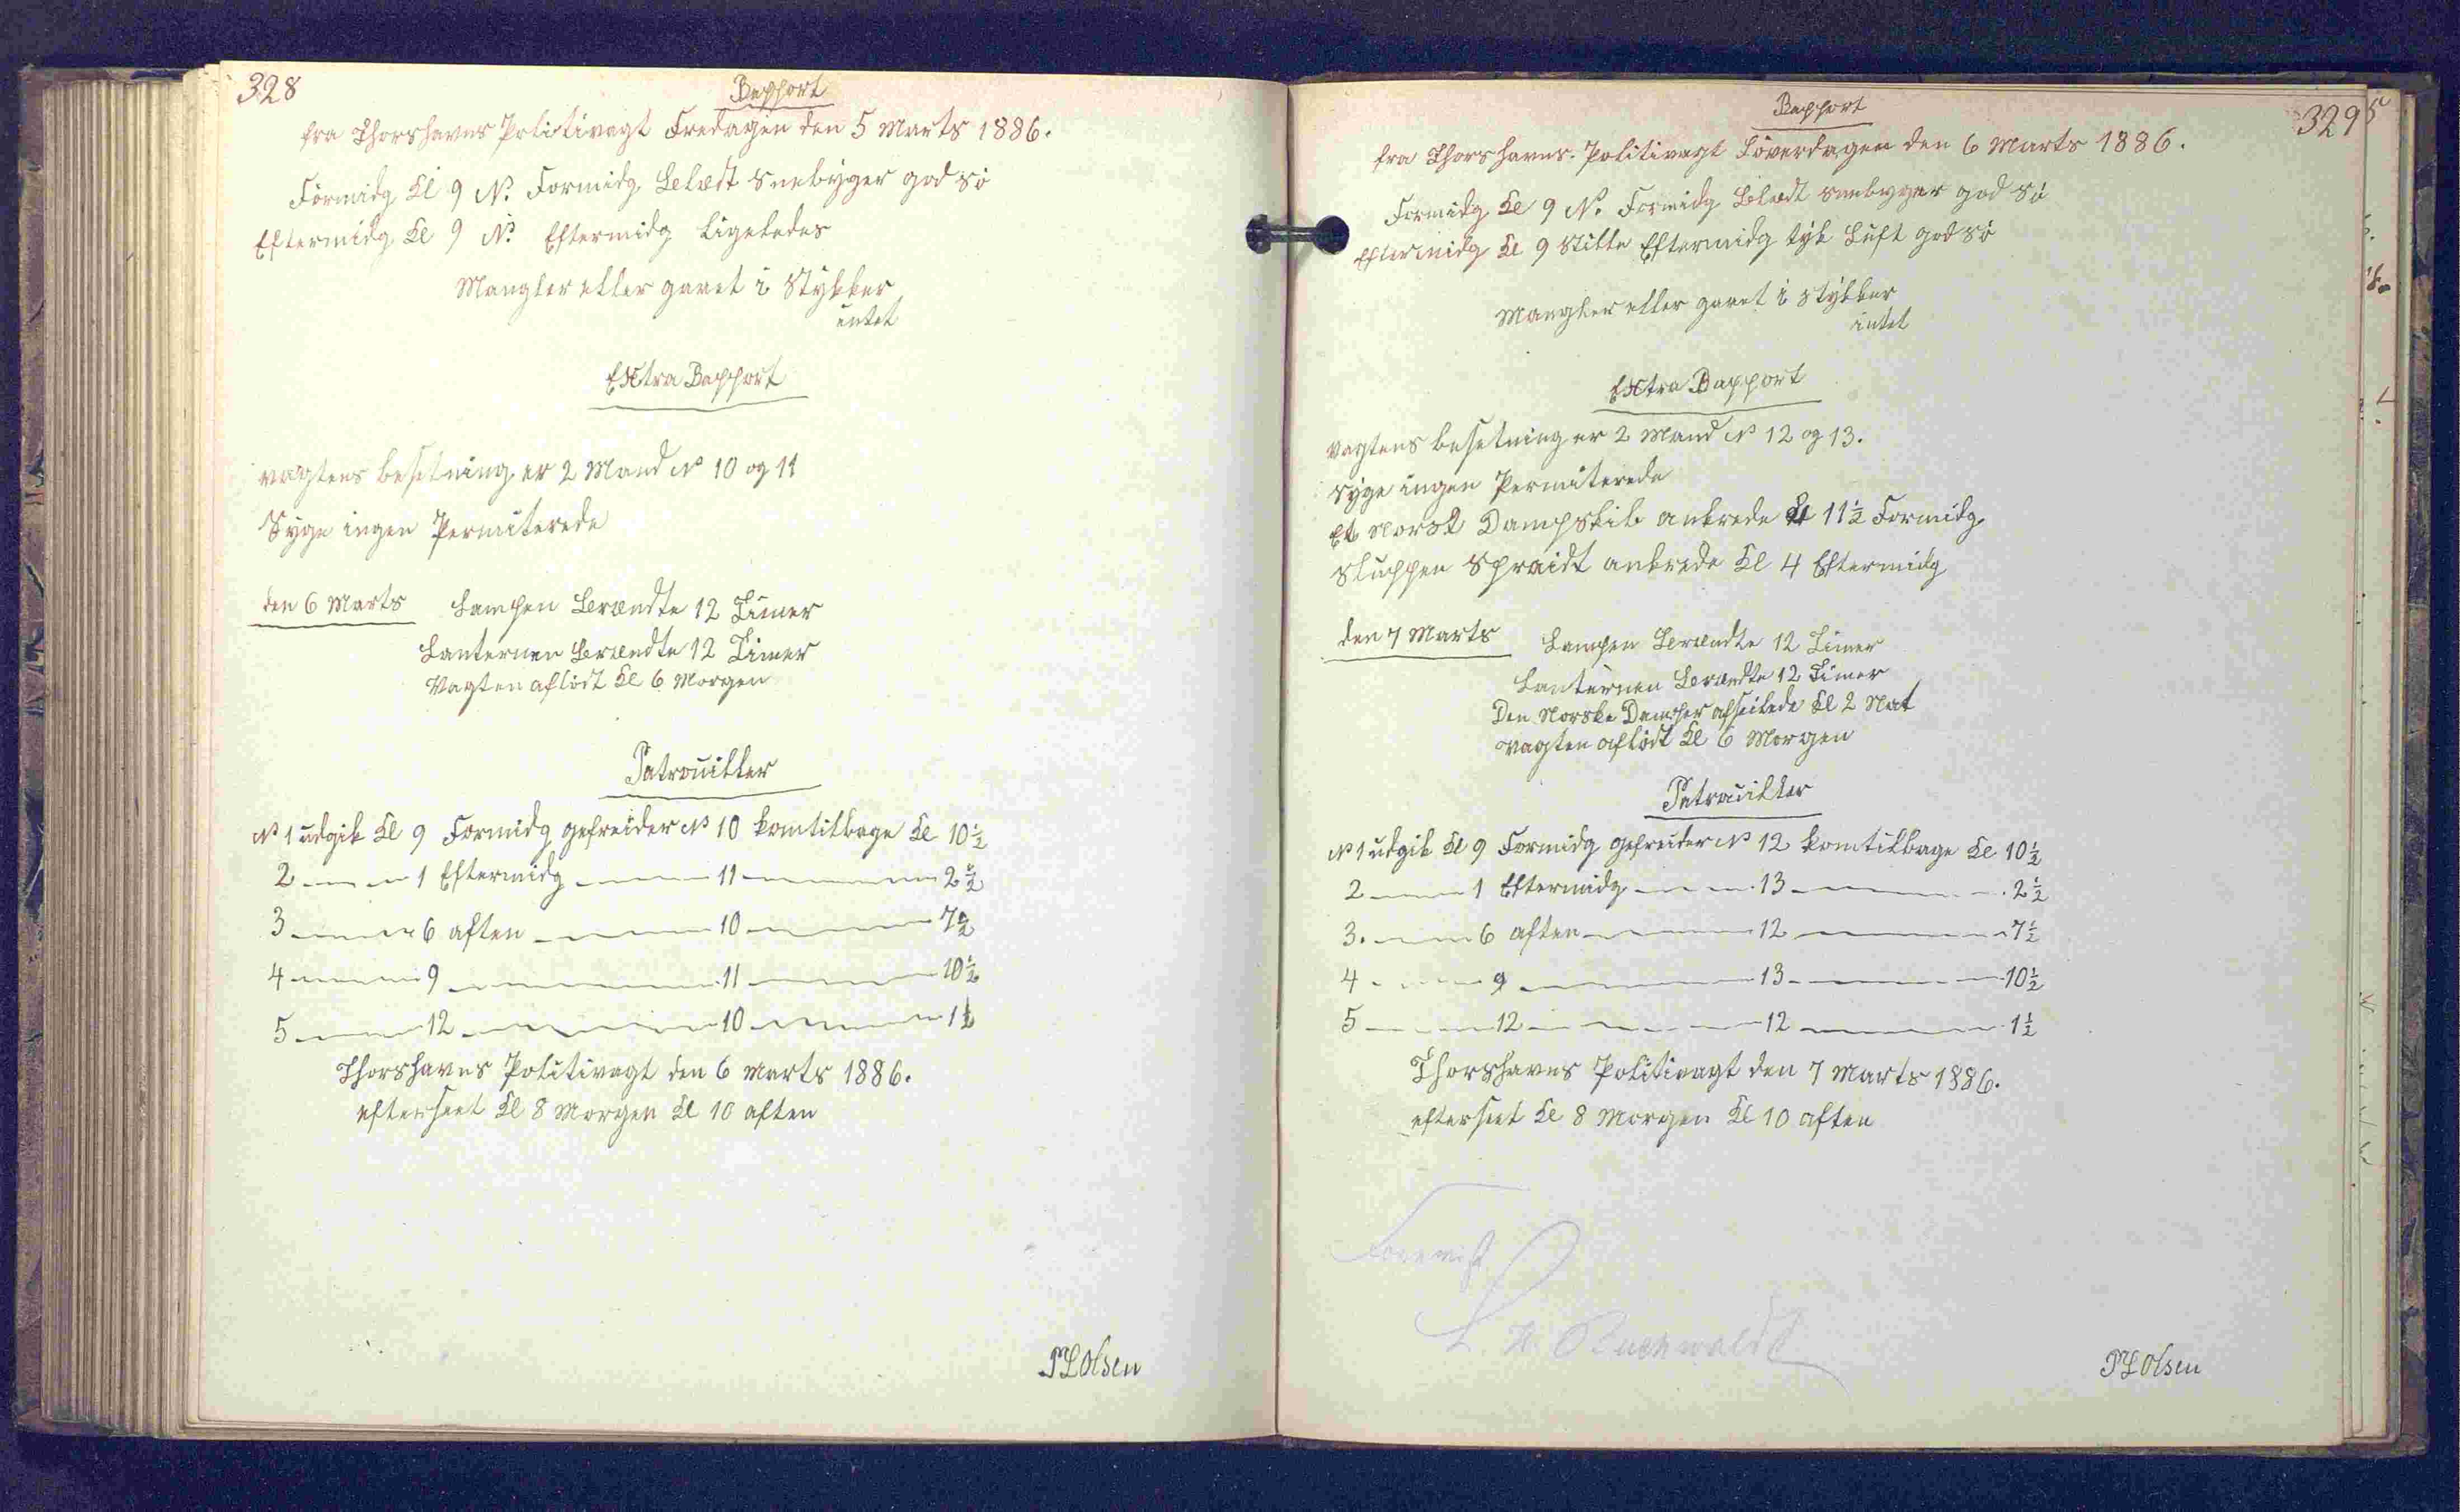 328
Rapport
fra Thorshavns Politivagt Fredagen den 5 Marts 1886.
Formidg Kl 9 N. Formidg Belædt Snebyger god Sö
Eftermidg Kl 9 N. Eftermidg ligeledes
Mangler eller gaaet i Stykker
intet
Extra Rapport
Vagtens besetning er 2 Mand No 10 og 11
Syge ingen Permiterede
den 6 Marts Lampen Brændte 12 Timer
Lanternen Brændte 12 Timer
Vagten aflödt Kl 6 Morgen
Patrouiller
No 1 udgik Kl 9 Formidg gefreider No 10 komtilbage Kl 10½
2 — 1 Eftermidg — 11 — 2½
3 — 6 aften — 10 — 7½
4 — 9 — 11 — 10½
5 — 12 — 10 — 1½
Thorshavns Politivagt den 6 Marts 1886.
efterseet Kl 8 Morgen Kl 10 aften
P L Olsen
329
Rapport
fra Thorshavns Politivagt Löverdagen den 6 Marts 1886.
Formidg Kl 9 N. Formidg Belædt snebyger god Sö
Eftermidg Kl 9 Stille Eftermidg tyk Luft god Sö
Mangler eller gaaet i Stykker
intet
Extra Rapport
Vagtens besetning er 2 Mand No 12 og 13.
Syge ingen Permiterede
Et Norsk Dampskib ankrede Kl 11½ Formidg
Sluppen Spraidt ankrede Kl 4 Eftermidg
den 7 Marts Lampen Brændte 12 Timer
Lanternen Brændte 12 Timer
Den Norske Damper afseilede Kl 2 Nat
Vagten aflödt Kl 6 Morgen
Patrouiller
No 1 udgik Kl 9 Formidg gefreider No 12 komtilbage Kl 10½
2 — 1 Eftermidg — 13 — 2½
3. — 6 aften — 12 — 7½
4 — 9 — 13 — 10½
5 — 12 — 12 — 1½
Thorshavns Politivagt den 7 Marts 1886.
efterseet Kl 8 Morgen Kl 10 aften
Forevist
Buchwaldt
P L Olsen